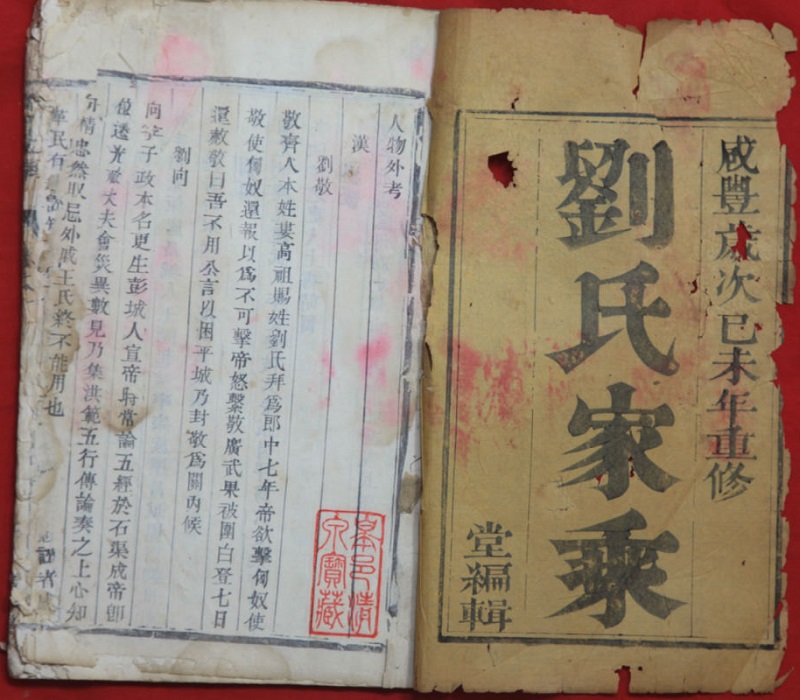 咸豐歲次己未年重修
劉氏家乘
堂編輯
人物外考
漢
劉敬
敬齊人本姓婁高祖賜姓劉氏拜爲郎中七年帝欲擊匈奴使
敬使匈奴還報以爲不可擊帝怒繫敬廣武果被圍白登七日
還赦敬曰吾不用公言以困平城乃封敬爲關內侯
劉向
向字子政本名更生彭城人宣帝時常論五經於石渠成帝即
位遷光祿大夫會災異數見乃集洪範五行傳論奏之上心知
向情忠然以忌外戚王氏終不能用也
寶藏